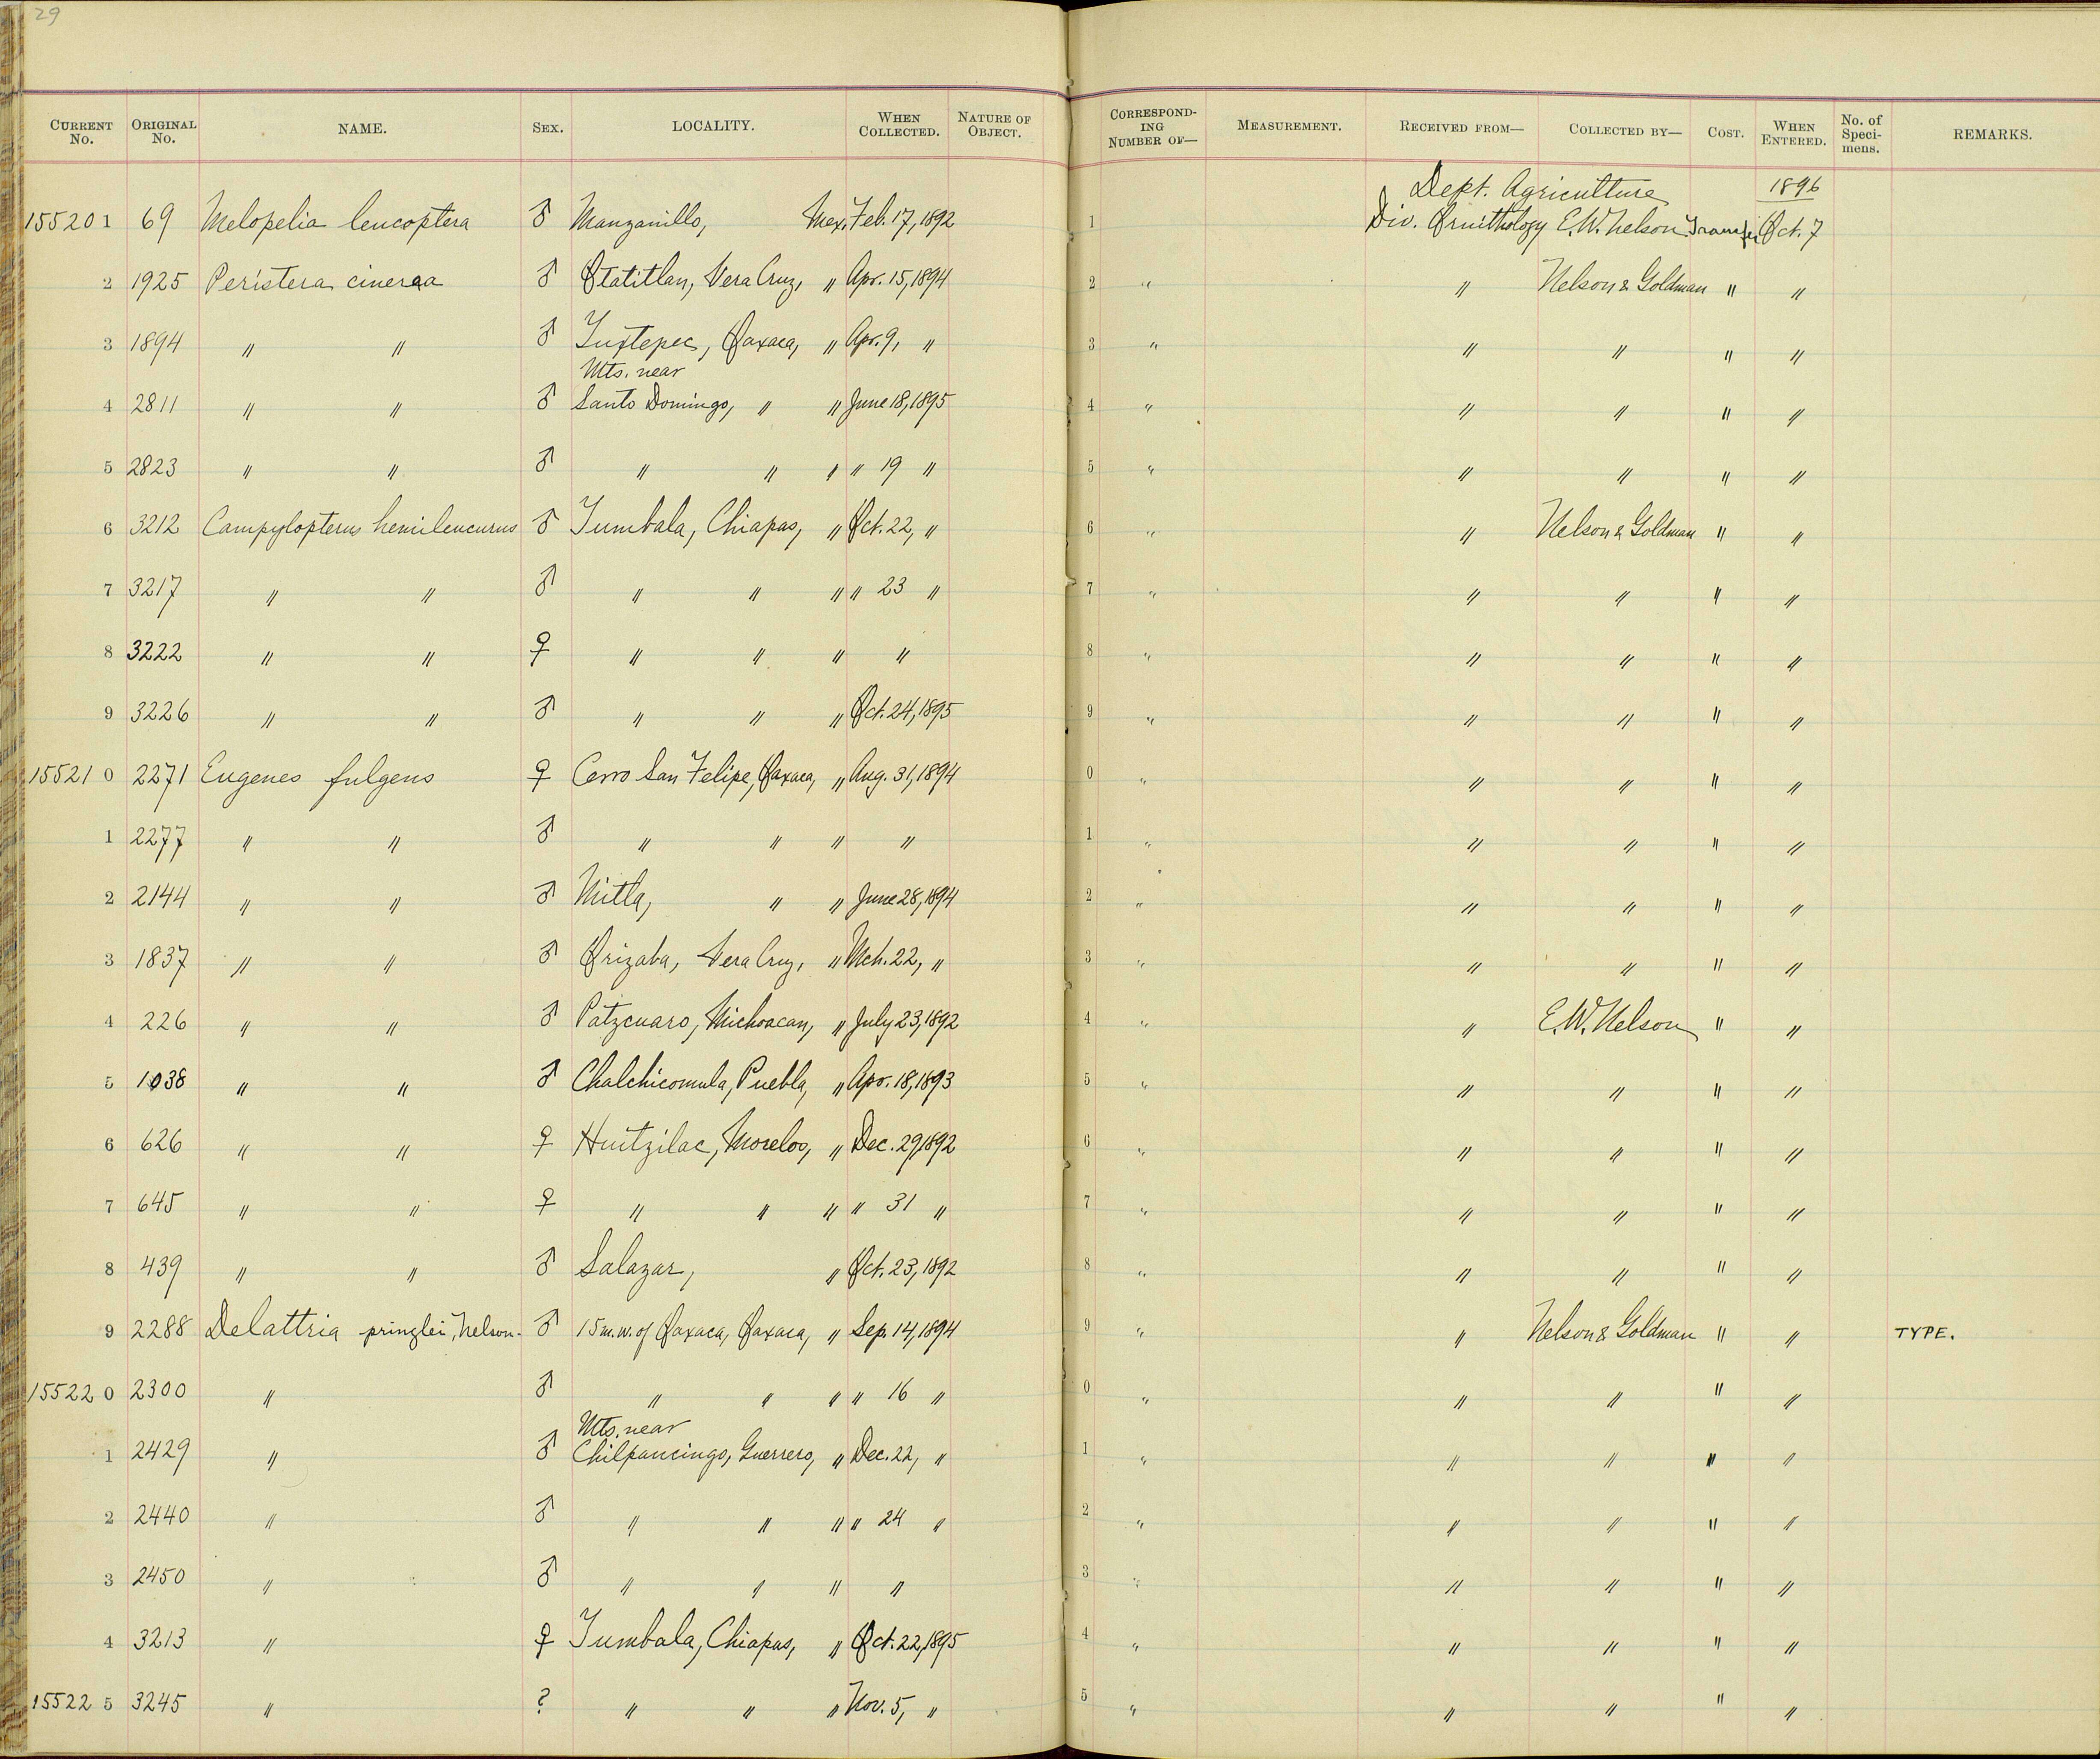 29
CURRENT No. ORIGINAL No. NAME. SEX. LOCALITY. WHEN COLLECTED. NATURE OF OBJECT. CORRESPONDING NUMBER OF— MEASUREMENT. RECEIVED FROM— COLLECTED BY— COST. WHEN ENTERED. No. of Specimens. REMARKS.
Dept. Agriculture 1896
155201 69 Melopelia leucoptera ♂ Manzanillo, Mex. Feb. 17, 1892 1 Div. Ornithology E.W. Nelson Transfer Oct. 7
2 1925 Peristera cinerea ♂ Otatitlan, Vera Cruz, " Apr. 15, 1894 2 " " Nelson & Goldman " "
3 1894 " " ♂ Tuxtepec, Oaxaca, " Apr. 9, " 3 " " " " "
Mts. near
4 2811 " " ♂ Santo Domingo, " " June 18, 1895 4 " " " " "
5 2823 " " ♂ " " " " 19 " 5 " " " " "
6 3212 Campylopterus hemileucurus ♂ Tumbala, Chiapas, " Oct. 22, " 6 " " Nelson & Goldman " "
7 3217 " " ♂ " " " " 23 " 7 " " " " "
8 3222 " " ♀ " " " " 8 " " " " "
9 3226 " " ♂ " " " Oct. 24, 1895 9 " " " " "
155210 2271 Eugenes fulgens ♀ Cerro San Felipe, Oaxaca, " Aug. 31, 1894 0 " " " " "
1 2277 " " ♂ " " " " 1 " " " " "
2 2144 " " ♂ Mitla, " " June 28, 1894 2 " " " " "
3 1837 " " ♂ Orizaba, Vera Cruz, " Mch. 22, " 3 " " " " "
4 226 " " ♂ Patzcuaro, Michoacan, " July 23, 1892 4 " " E.W. Nelson " "
5 1038 " " ♂ Chalchicomula, Puebla, " Apr. 18, 1893 5 " " " " "
6 626 " " ♀ Huitzilac, Morelos, " Dec. 29, 1892 6 " " " " "
7 645 " " ♀ " " " " 31 " 7 " " " " "
8 439 " " ♂ Salazar, " Oct. 23, 1892 8 " " " " "
9 2288 Delattria pringlei, Nelson. ♂ 15 m. w. of Oaxaca, Oaxaca, " Sep 14, 1894 9 " " Nelson & Goldman " " TYPE.
155220 2300 " ♂ " " " " 16 " 0 " " " " "
Mts. near
1 2429 " ♂ Chilpancingo, Guerrero, " Dec. 22, " 1 " " " " "
2 2440 " ♂ " " " " 24 " 2 " " " " "
3 2450 " ♂ " " " " 3 " " " " "
4 3213 " ♀ Tumbala, Chiapas, " Oct. 22, 1895 4 " " " " "
155225 3245 " ? " " " Nov. 5, " 5 " " " " "